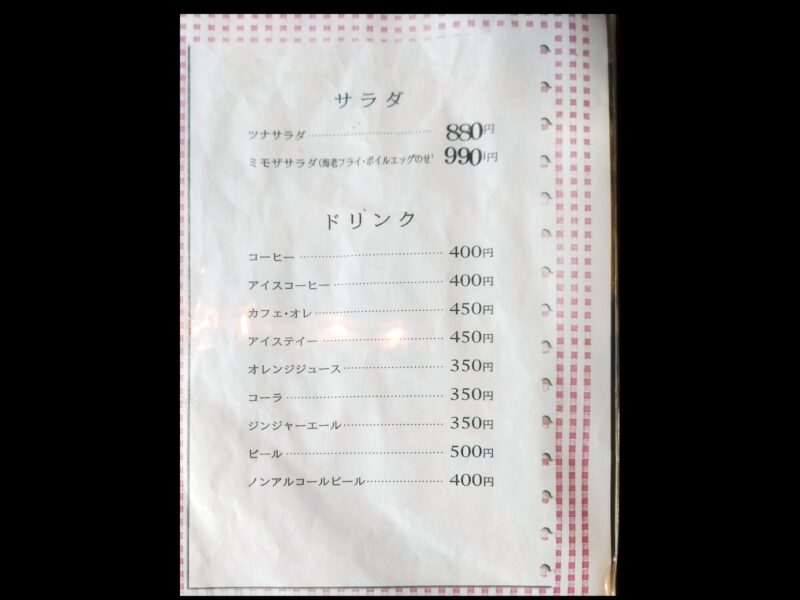 サラダ
ツナサラダ 880円
ミモザサラダ(海老フライ・ボイルエッグのせ) 990円
ドリンク
コーヒー 400円
アイスコーヒー 400円
カフェ・オレ 450円
アイステイー 450円
オレンジジュース 350円
コーラ 350円
ジンジャーエール 350円
ビール 500円
ノンアルコールビール 400円